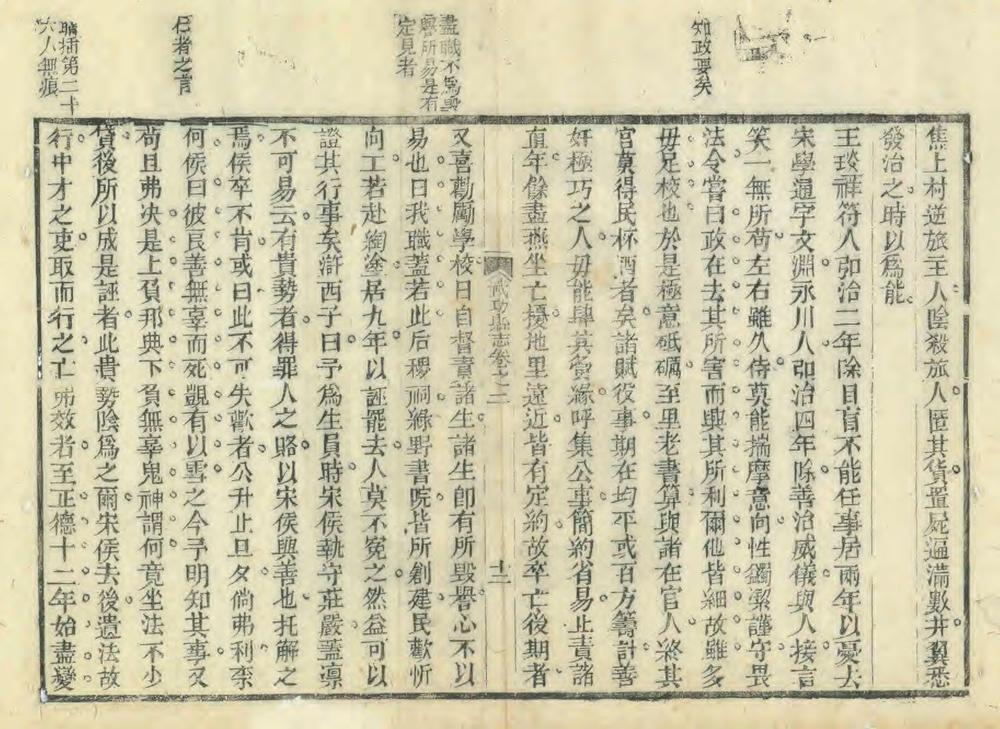 知政要矣
盡職不爲輿
譽所易是有
定見者
仁者之言
聯插第二十
六人無痕
焦上村逆旅主人陰殺旅人匿其貨置屍遍滿數井翼悉
發治之時以爲能
王琰祥符人弘治二年除目盲不能任事居兩年以憂去
宋學通字文淵永川人弘治四年除善治威儀與人接言
笑一無所苟左右雖久侍莫能揣摩意向性蠲潔謹守畏
法令嘗曰政在去其所害而興其所利爾他皆細故雖多
毋足校也於是極意砥礪至里老書算與諸在官人終其
官莫得民杯酒者矣諸賦役事期在均平或百方籌計善
奸極巧之人毋能肆其夤緣呼集公事簡約省易止責諸
直年餘盡燕坐亡擾地里遠近皆有定約故卒亡後期者
武功縣志卷之二
十三
又喜勸勵學校日自督責諸生諸生卽有所毀譽心不以
易也曰我職蓋若此后稷祠綠野書院皆所創建民歡忻
向工若赴綯塗居九年以誣罷去人莫不寃之然益可以
證其行事矣滸西子曰予爲生員時宋侯執守莊嚴蓋凛
不可易云有貴勢者得罪人之賂以宋侯與善也托解之
焉侯卒不肯或曰此不可失歡者公升止旦夕倘弗利柰
何侯曰彼良善無辜而死覬有以雪之今予明知其事又
苟且弗决是上負邦典下負無辜鬼神謂何竟坐法不少
貸後所以成是誣者此貴勢陰爲之爾宋侯去後遺法故
行中才之吏取而行之亡弗效者至正德十二年始盡變